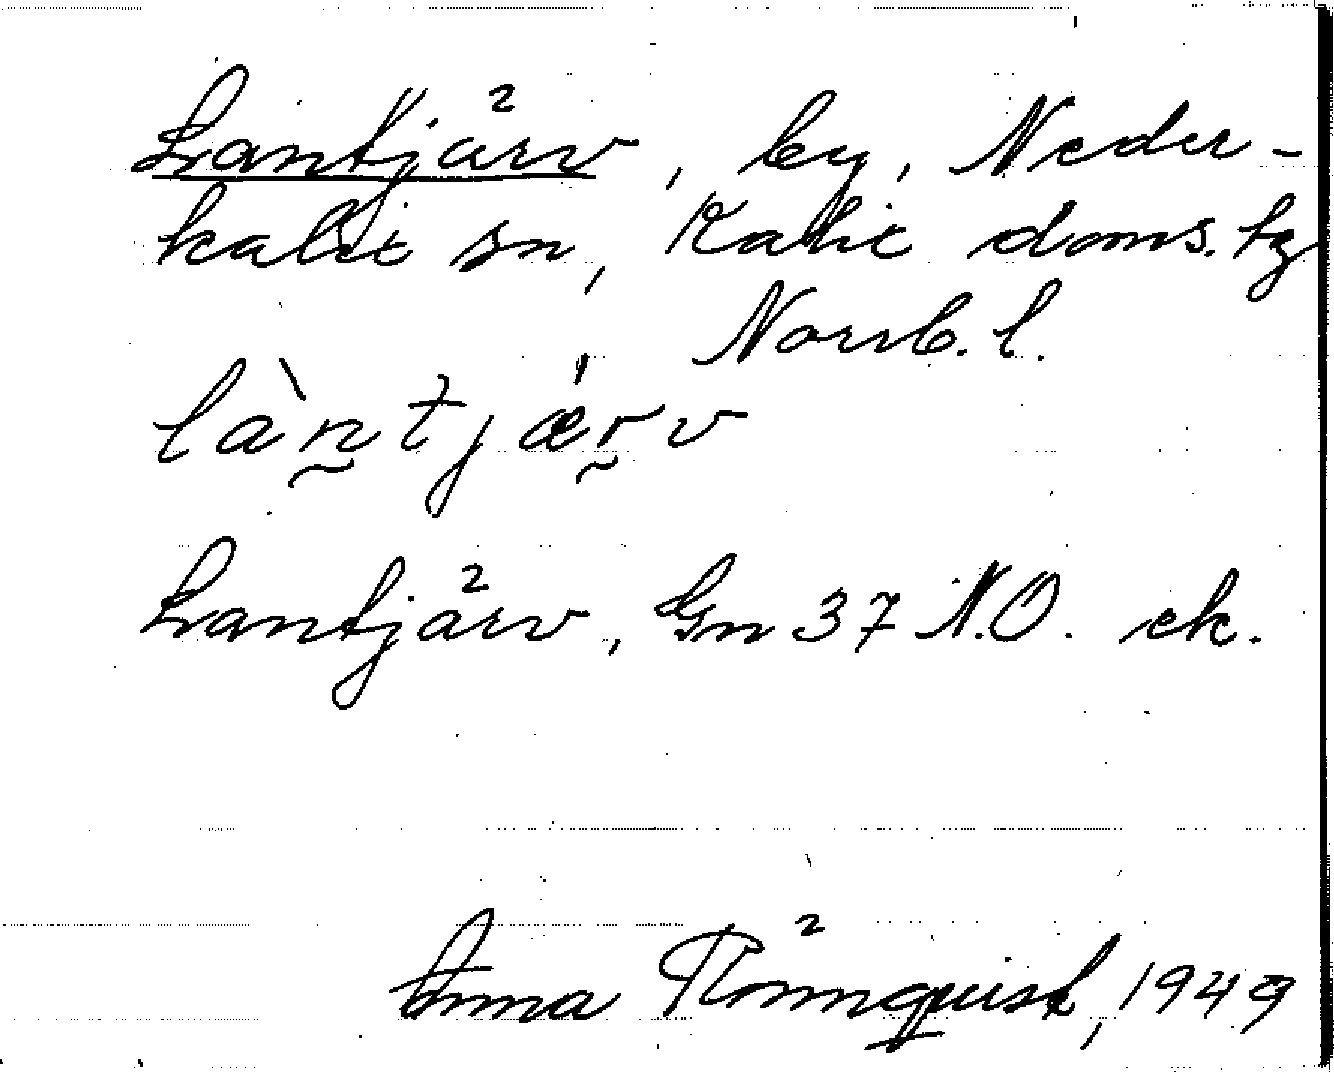 Lantjärv, by, Neder-
kalix sn, Kalix doms. tg
Norrb. l.
làntjæ̀rv
Lantjärv, Gn 37 N.O. ek.
Anna Rönnquist, 1949